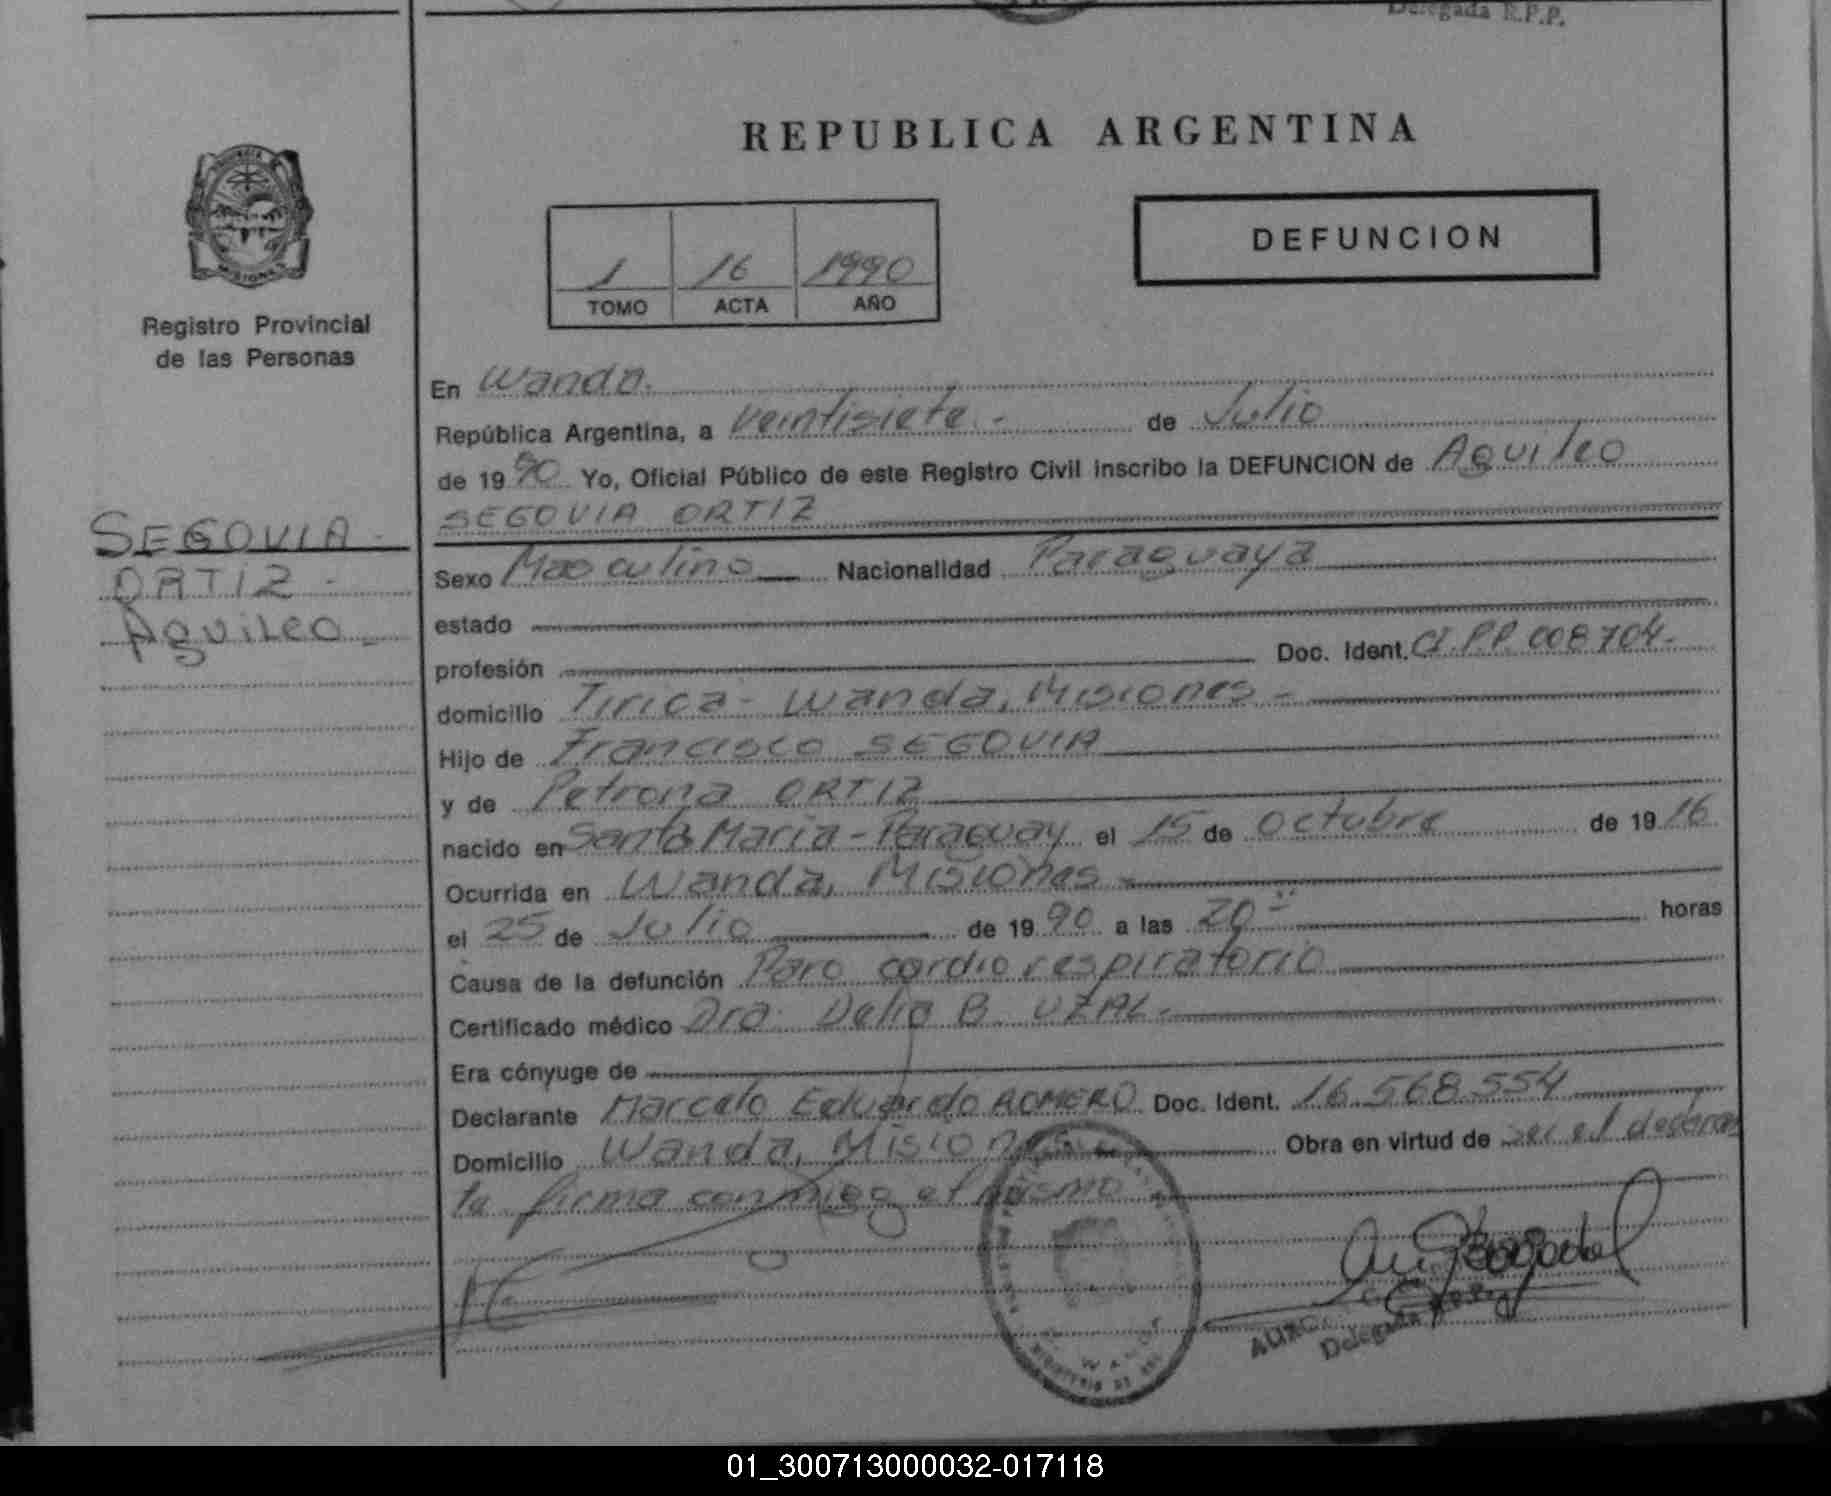 Delegada R.P.P.
REPUBLICA ARGENTINA
DEFUNCION
1 16 1990
TOMO ACTA AÑO
MISIONES
Registro Provincial
de las Personas
SEGOVIA -
ORTIZ -
Aquileo -
En Wanda.
República Argentina, a veintisiete - de Julio
de 1990 Yo, Oficial Público de este Registro Civil inscribo la DEFUNCION de Aquileo
SEGOVIA ORTIZ
Sexo Masculino Nacionalidad Paraguaya
estado
profesión Doc. Ident. CI.P.P. 008704-
domicilio Tirica - Wanda, Misiones -
Hijo de Francisco SEGOVIA
y de Petrona ORTIZ
nacido en Santa Maria - Paraguay el 15 de Octubre de 1916
Ocurrida en Wanda, Misiones -
el 25 de Julio de 1990 a las 20 horas
Causa de la defunción Paro cardio respiratorio
Certificado médico Dra. Delia B. UZAL -
Era cónyuge de
Declarante Marcelo Eduardo ROMERO Doc. Ident. 16.568.554
Domicilio Wanda, Misiones Obra en virtud de ser el declaran
te firma conmigo el mismo
Delegada R.P.P.
01_300713000032-017118